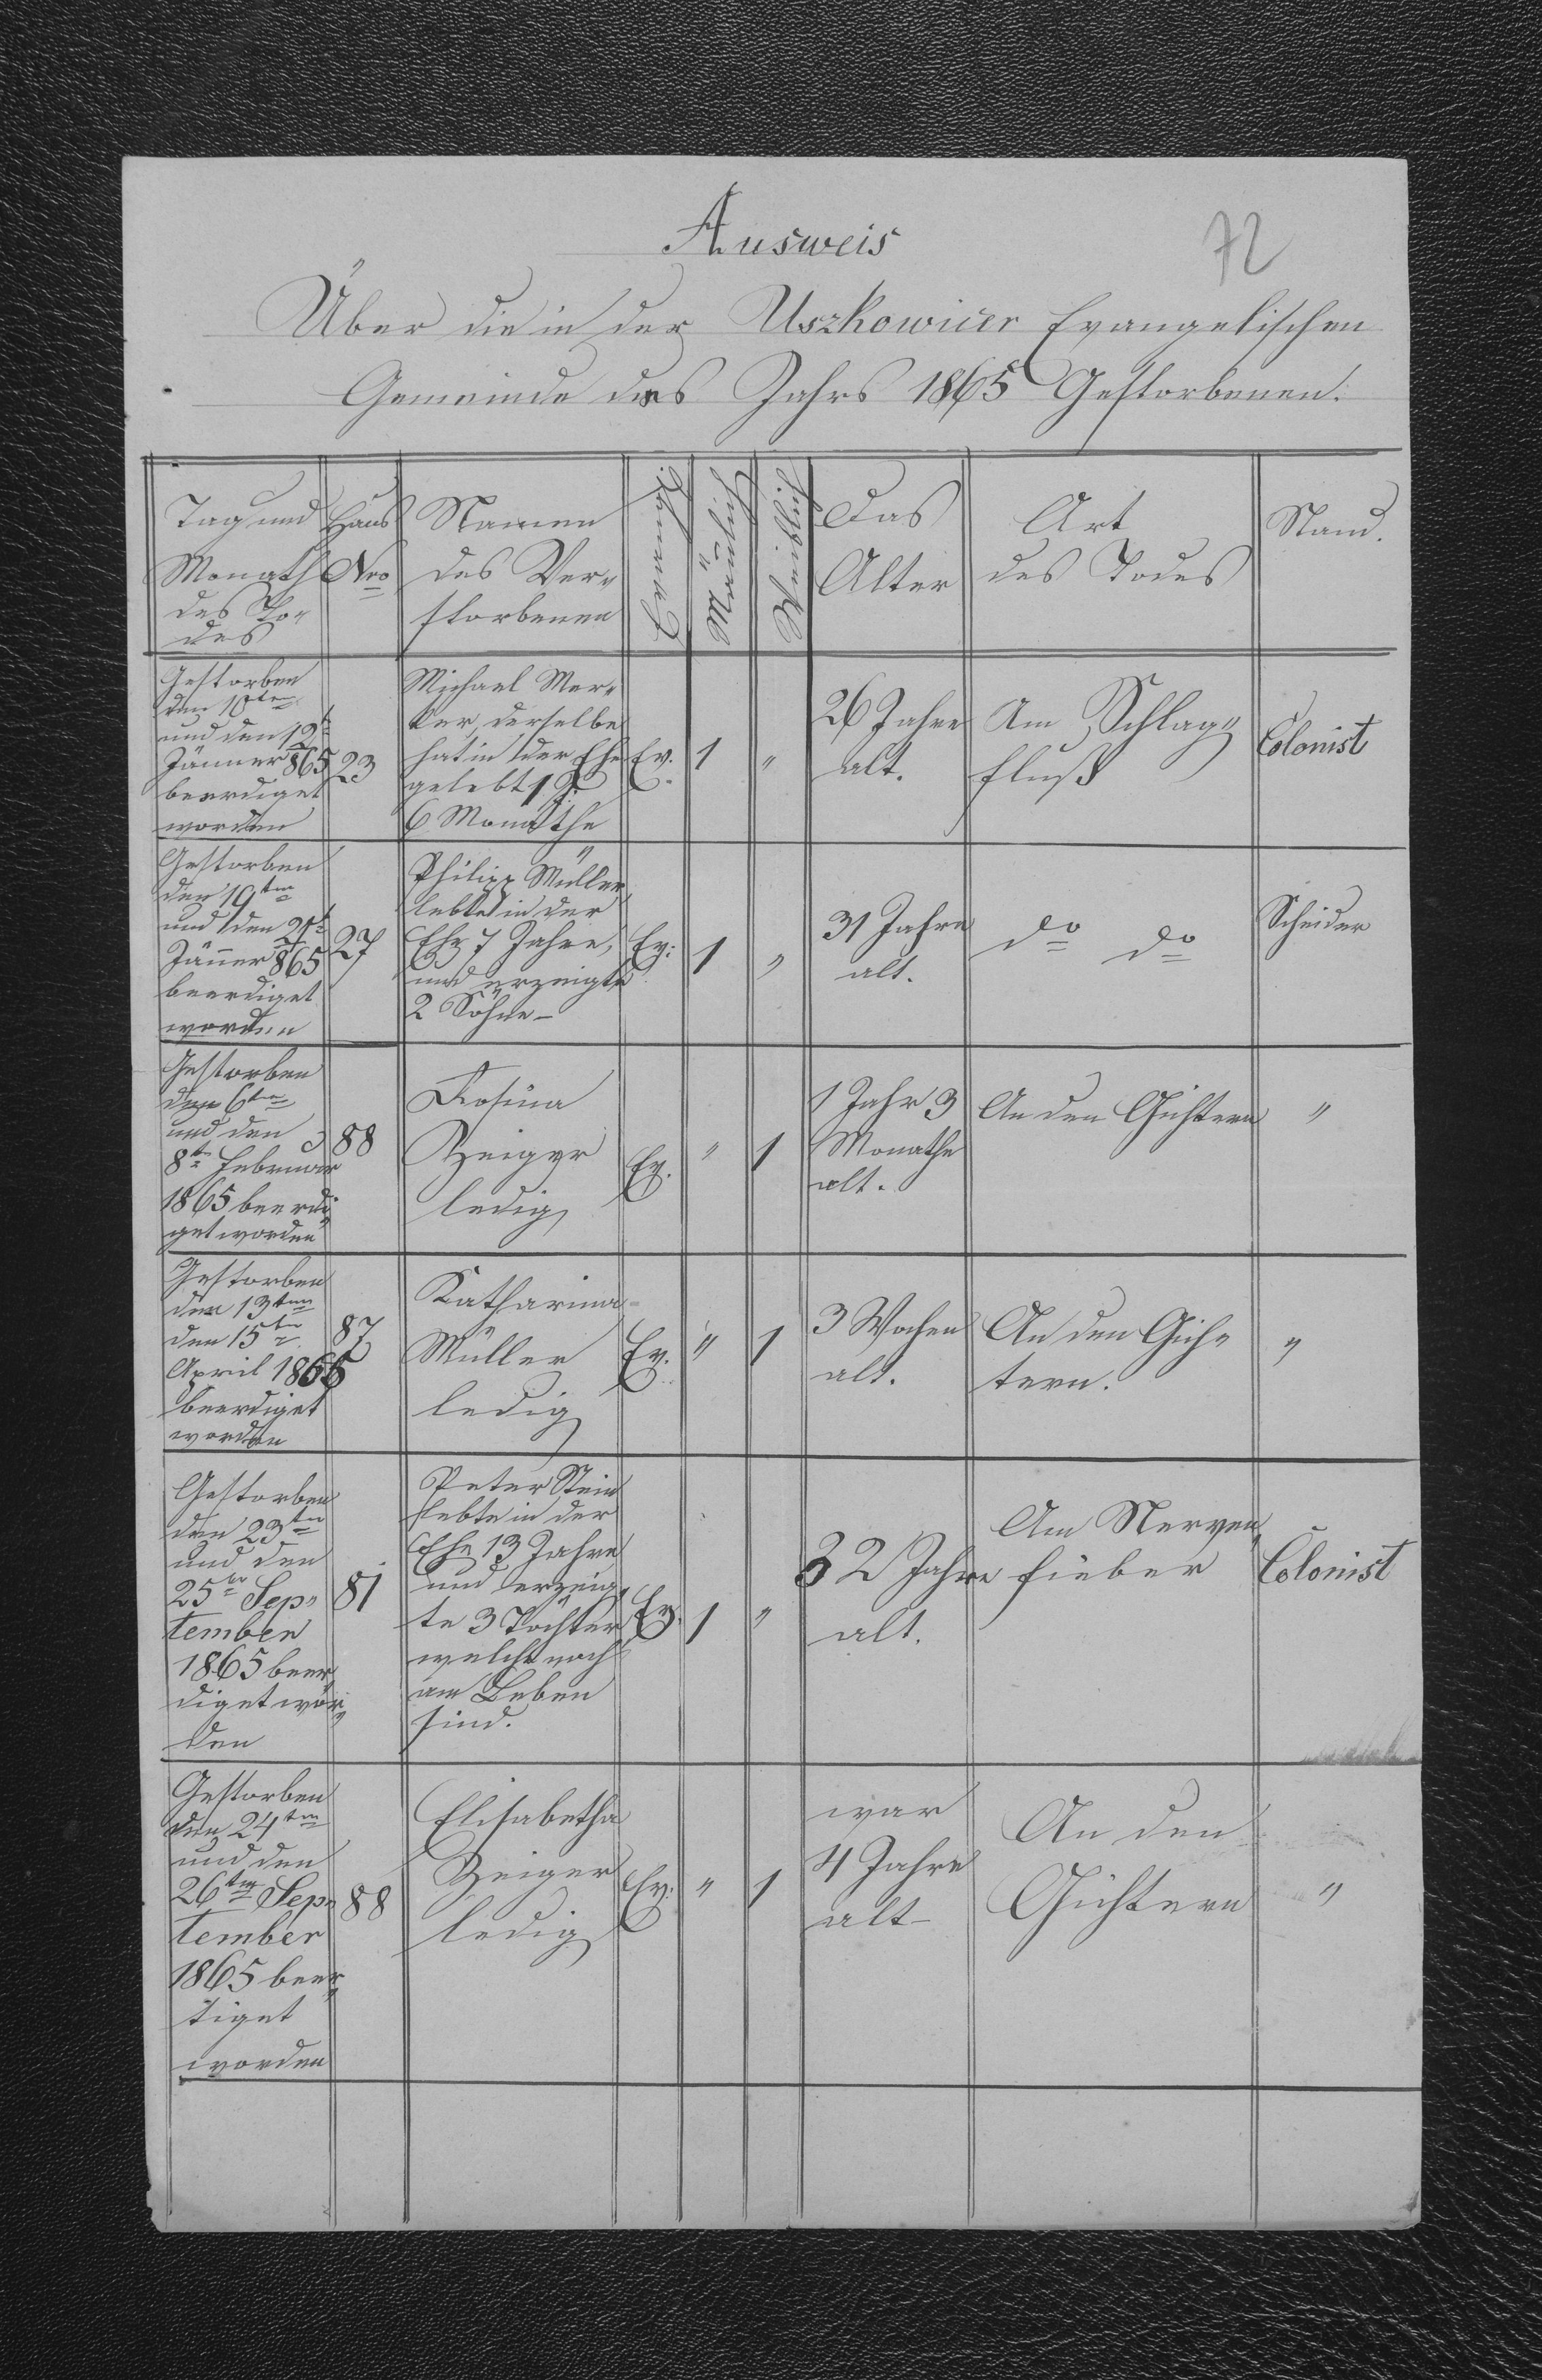 72
Ausweis
Über die in der Uszkowicer Evangelischen
Gemeinde des Jahrs 1865 Gestorbenen.
Tag und
Monath
des To-
des
Haus
Nro
Namen
des Ver-
storbenen
Männlich
Weiblich
Das
Alter
Art
des Todes
Stand.
Gestorben
den 10ten
und den 12t
Jänner 865
beerdiget
worden
23
Michael Mer-
ker, derselbe
hat in der Ehe
gelebt 1 J:
6 Monathe
Ev.
1
"
26 Jahre
alt.
Am Schlag-
fluß
Colonist
Gestorben
den 19ten
und den 21t
Jänner 865
beerdiget
worden
27
Philipp Müller,
lebte in der
Ehe 7 Jahre,
und erzeigte
2 Söhne-
Ev:
1
"
31 Jahre
alt.
do do
Schnider
Gestorben
den 6ten
und den
8tn Februar
1865 beerdi-
get worden
88
Rosina
Zeiger
ledig
Ev.
"
1
1 Jahr 3
Monathe
alt.
An den Gichtern
"
Gestorben
den 13ten
den 15ten
April 1865
beerdiget
worden
87
Katharina
Müller
ledig
Ev.
"
1
3 Wochen
alt.
An den Gich-
tern.
"
Gestorben
den 23ten
und den
25tn Sep-
tember
1865 beer-
diget wor-
den
81
Peter Stein
lebte in der
Ehe 13 Jahre
und erzeig-
te 3 Töchter
welche noch
am Leben
sind.
Ev.
1
"
32 Jahre
alt.
Am Nerven-
fieber
Colonist
Gestorben
den 24ten
und den
26ten Sep-
tember
1865 beer-
tiget
worden
88
Elisabetha
Zeiger
ledig
Ev:
"
1
war
4 Jahre
alt-
An den
Gichtern
"